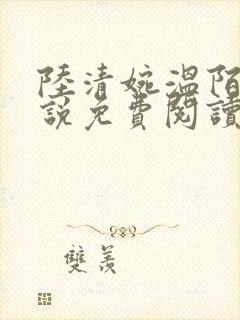 陸清婉溫陌
說免費閱讀
雙羨